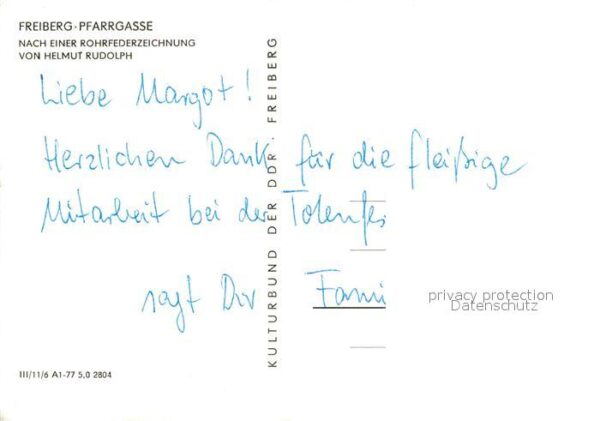 FREIBERG · PFARRGASSE
NACH EINER ROHRFEDERZEICHNUNG
VON HELMUT RUDOLPH
Liebe Margot!
Herzlichen Dank für die fleißige
Mitarbeit bei der
sagt Dir Fami
KULTURBUND DER DDR FREIBERG
privacy protection
Datenschutz
III/11/6 A1-77 5,0 2804